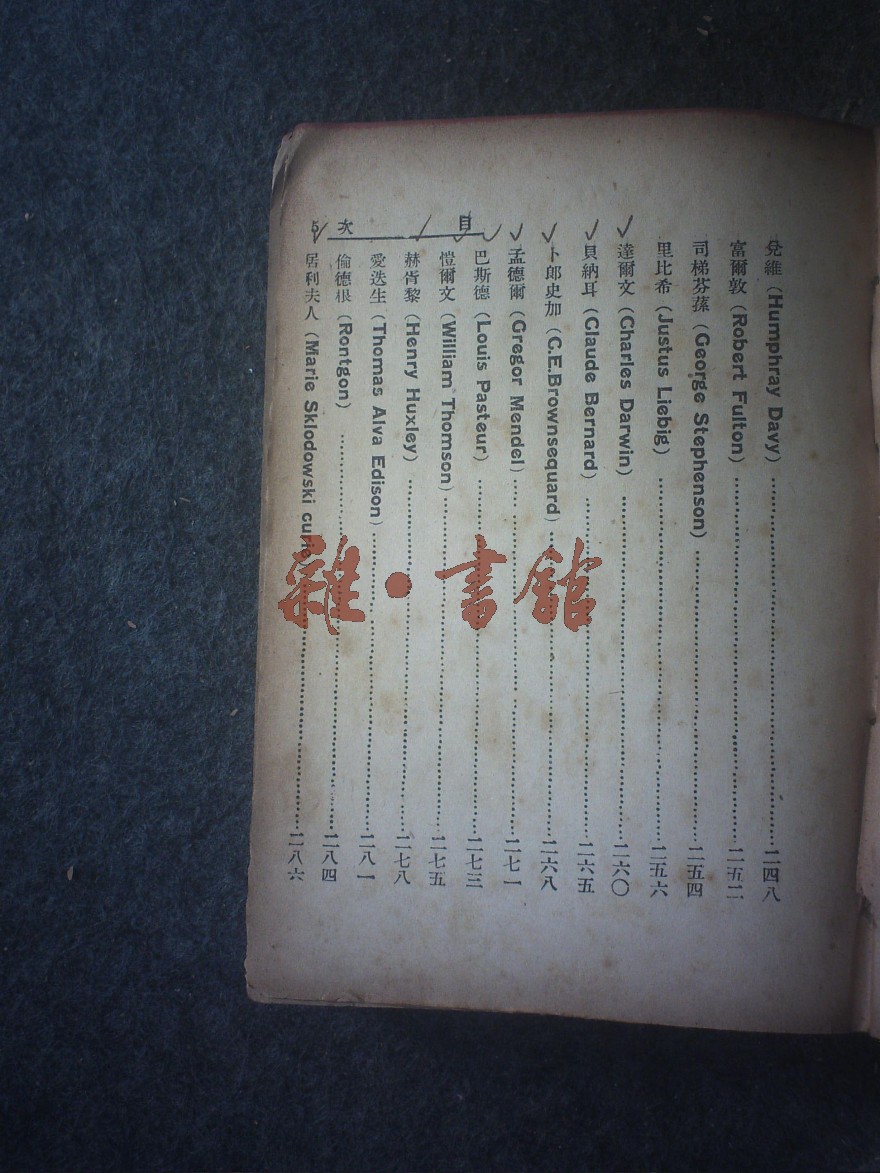 目次 5
兌維(Humphray Davy)……二四八
富爾敦(Robert Fulton)……二五二
司梯芬蓀(George Stephenson)……二五四
里比希(Justus Liebig)……二五六
達爾文(Charles Darwin)……二六〇
貝納耳(Claude Bernard)……二六五
卜郎史加(C.E.Brownsequard)……二六八
孟德爾(Gregor Mendel)……二七一
巴斯德(Louis Pasteur)……二七三
愷爾文(William Thomson)……二七五
赫胥黎(Henry Huxley)……二七八
愛迭生(Thomas Alva Edison)……二八一
倫德根(Rontgon)……二八四
居利夫人(Marie Sklodowski curie)……二八六
雜·書館